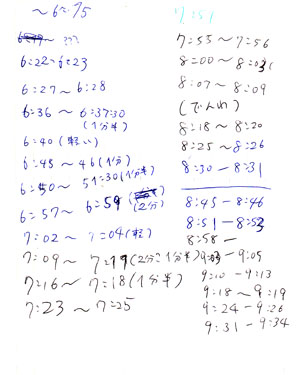 ~6:15
~ ???
6:22~6:23
6:27~6:28
6:36~6:37:30
(1分半)
6:40(軽い)
6:45~46(1分)
6:50~51:30(1分半)
6:57~6:59
(2分)
7:02~7:04(軽)
7:09~7:11(2分こ1分半)
7:16~7:18(1分半)
7:23~7:25
7:51
7:55~7:56
8:00~8:03
8:07~8:09
(でんわ)
8:18~8:20
8:25~8:26
8:30-8:31
8:45-8:46
8:51-8:53
8:58-
9:03-9:05
9:10-9:13
9:18~9:19
9:24-9:26
9:31-9:34